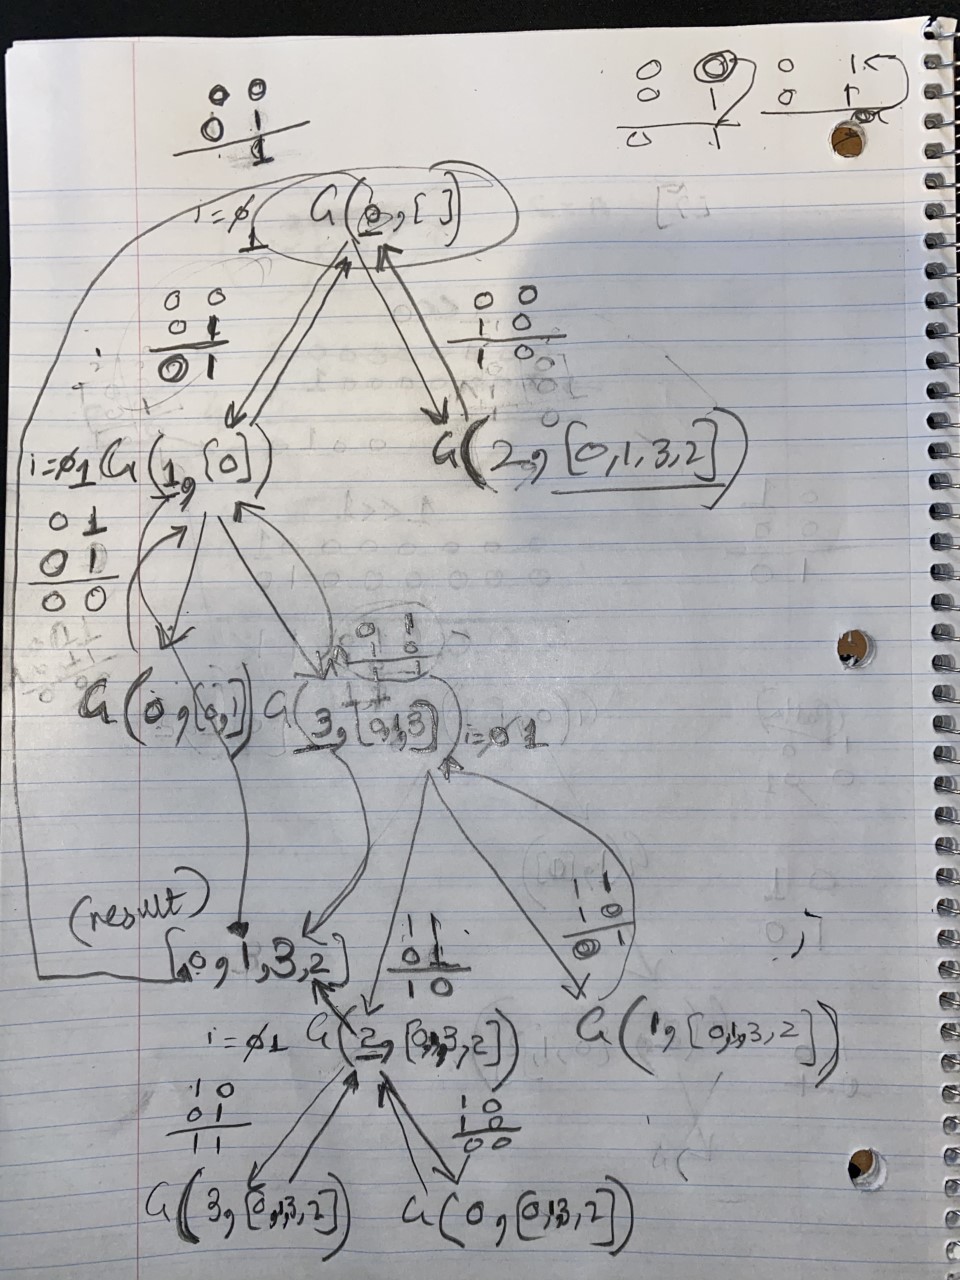 0 0
0 1
1
0 0
0 1
0 1
0 1
0 1
i=0 1
G(0,[ ]
0 0
0 1
0 1
0 0
1 0
1 0
i=0 1 G(1,[0])
G(2,[0,1,3,2])
0 1
0 1
0 0
0 1
1 0
1 1
G(0,[0,1]
G(3,[0,1,3]) i=0 1
(result)
[0,1,3,2]
1 1
0 1
1 0
1 1
1 0
0 1
i=0 1 G(2,[0,1,3,2])
G(1,[0,1,3,2])
1 0
0 1
1 1
1 0
1 0
0 0
G(3,[0,1,3,2])
G(0,[0,1,3,2])